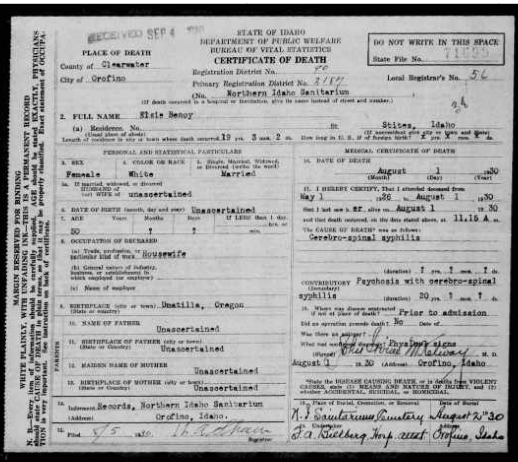 RECEIVED SEP 4
STATE OF IDAHO
DEPARTMENT OF PUBLIC WELFARE
BUREAU OF VITAL STATISTICS
CERTIFICATE OF DEATH
DO NOT WRITE IN THIS SPACE
State File No.
PLACE OF DEATH
County of Clearwater
City of Orofino
Registration District No. 90
Primary Registration District No. 2187
Local Registrar's No. 56
(No. Northern Idaho Sanitarium
(If death occurred in a hospital or institution, give its name instead of street and number.)
2. FULL NAME Elsie Bemoy
(a) Residence. No. St. Stites, Idaho
(Usual place of abode) (If nonresident give city or town and state)
Length of residence in city or town where death occurred 19 yrs. 3 mos. 2 ds. How long in U. S., if of foreign birth?
PERSONAL AND STATISTICAL PARTICULARS
MEDICAL CERTIFICATE OF DEATH
3. SEX 4. COLOR OR RACE 5. Single, Married, Widowed, or Divorced (write the word)
Female White Married
16. DATE OF DEATH
August 1 1930
(Month) (Day) (Year)
5a. If married, widowed, or divorced
HUSBAND of
(or) WIFE of unascertained
17. I HEREBY CERTIFY, That I attended deceased from
May 1 1926 August 1 1930
that I last saw er August 1 1930
and that death occurred, on the date stated above, at 11.15 A m.
The CAUSE OF DEATH* was as follows:
Cerebro-spinal syphilis
6. DATE OF BIRTH (month, day and year) Unascertained
7. AGE Years Months Days If LESS than 1 day
50 ? ?
8. OCCUPATION OF DECEASED
(a) Trade, profession, or
particular kind of work Housewife
(b) General nature of industry,
business, or establishment in
which employed (or employer)
(c) Name of employer
(duration) ? yrs. ? mos. ? ds.
CONTRIBUTORY Psychosis with cerebro-spinal
(Secondary)
syphilis (duration) 20 yrs. ? mos. ? ds.
9. BIRTHPLACE (city or town) Umatilla, Oregon
(State or country)
18. Where was disease contracted
if not at place of death? Prior to admission
Did an operation precede death? No Date of
Was there an autopsy?
What test confirmed diagnosis? Physical signs
(Signed) M. D.
August 1 1930 Orofino, Idaho
PARENTS
10. NAME OF FATHER
Unascertained
11. BIRTHPLACE OF FATHER (city or town)
(State or Country) Unascertained
12. MAIDEN NAME OF MOTHER
Unascertained
13. BIRTHPLACE OF MOTHER (city or town)
(State or Country) Unascertained
*State the DISEASE CAUSING DEATH, or in deaths from VIOLENT
CAUSES, state (1) MEANS AND NATURE OF INJURY, and (2)
whether ACCIDENTAL, SUICIDAL, or HOMICIDAL.
14. Informant Records, Northern Idaho Sanitarium
(Address) Orofino, Idaho.
19. Place of Burial, Cremation, or Removal Date of Burial
N. I Sanitarium Cemetery August 2" 30
15. Filed 8/5 1930
Registrar
20. Undertaker Address
F.A. Billberg, Hosp. Orofino, Idaho
MARGIN RESERVED FOR BINDING
WRITE PLAINLY, WITH UNFADING INK—THIS IS A PERMANENT RECORD